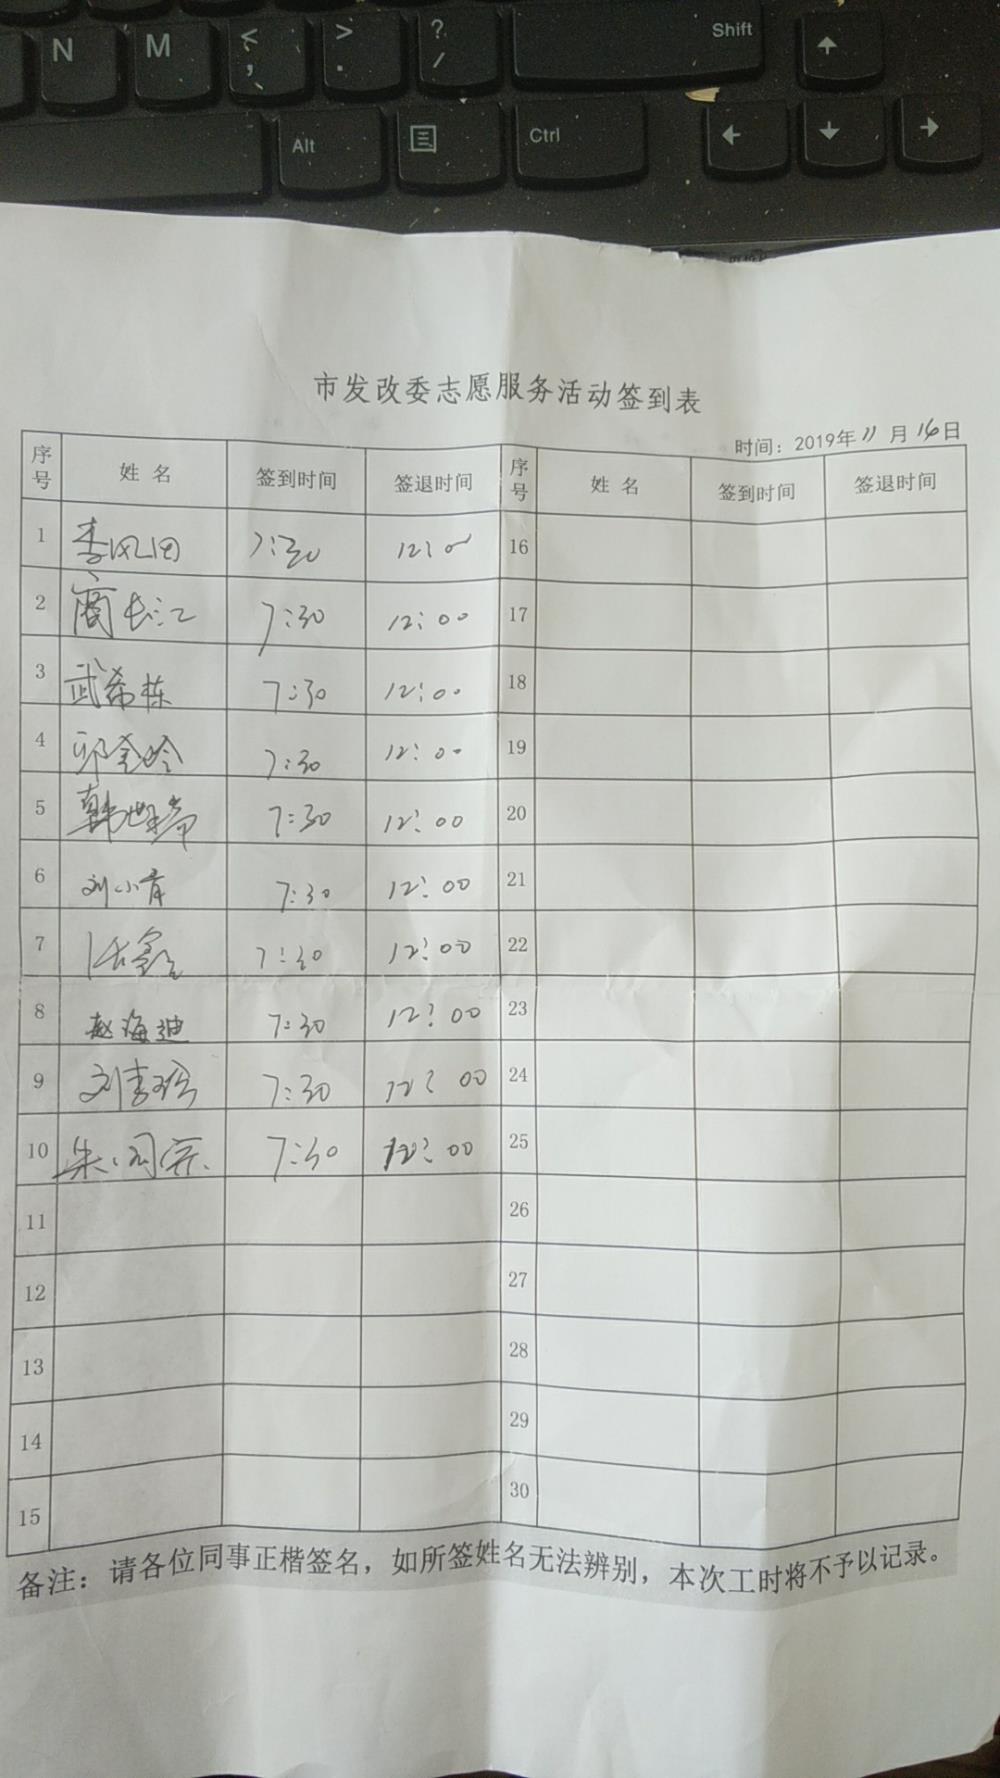 N M < , > . ? / Shift ↑
Alt Ctrl ← ↓ →
市发改委志愿服务活动签到表
时间：2019年11月16日
序号 姓名 签到时间 签退时间 序号 姓名 签到时间 签退时间
1 李凤田 7:30 12:00 16
2 商长江 7:30 12:00 17
3 武希栋 7:30 12:00 18
4 邱金玲 7:30 12:00 19
5 韩 7:30 12:00 20
6 刘小青 7:30 12:00 21
7 张鑫 7:30 12:00 22
8 赵海迪 7:30 12:00 23
9 刘 7:30 12:00 24
10 朱 7:30 12:00 25
11 26
12 27
13 28
14 29
15 30
备注：请各位同事正楷签名，如所签姓名无法辨别，本次工时将不予以记录。